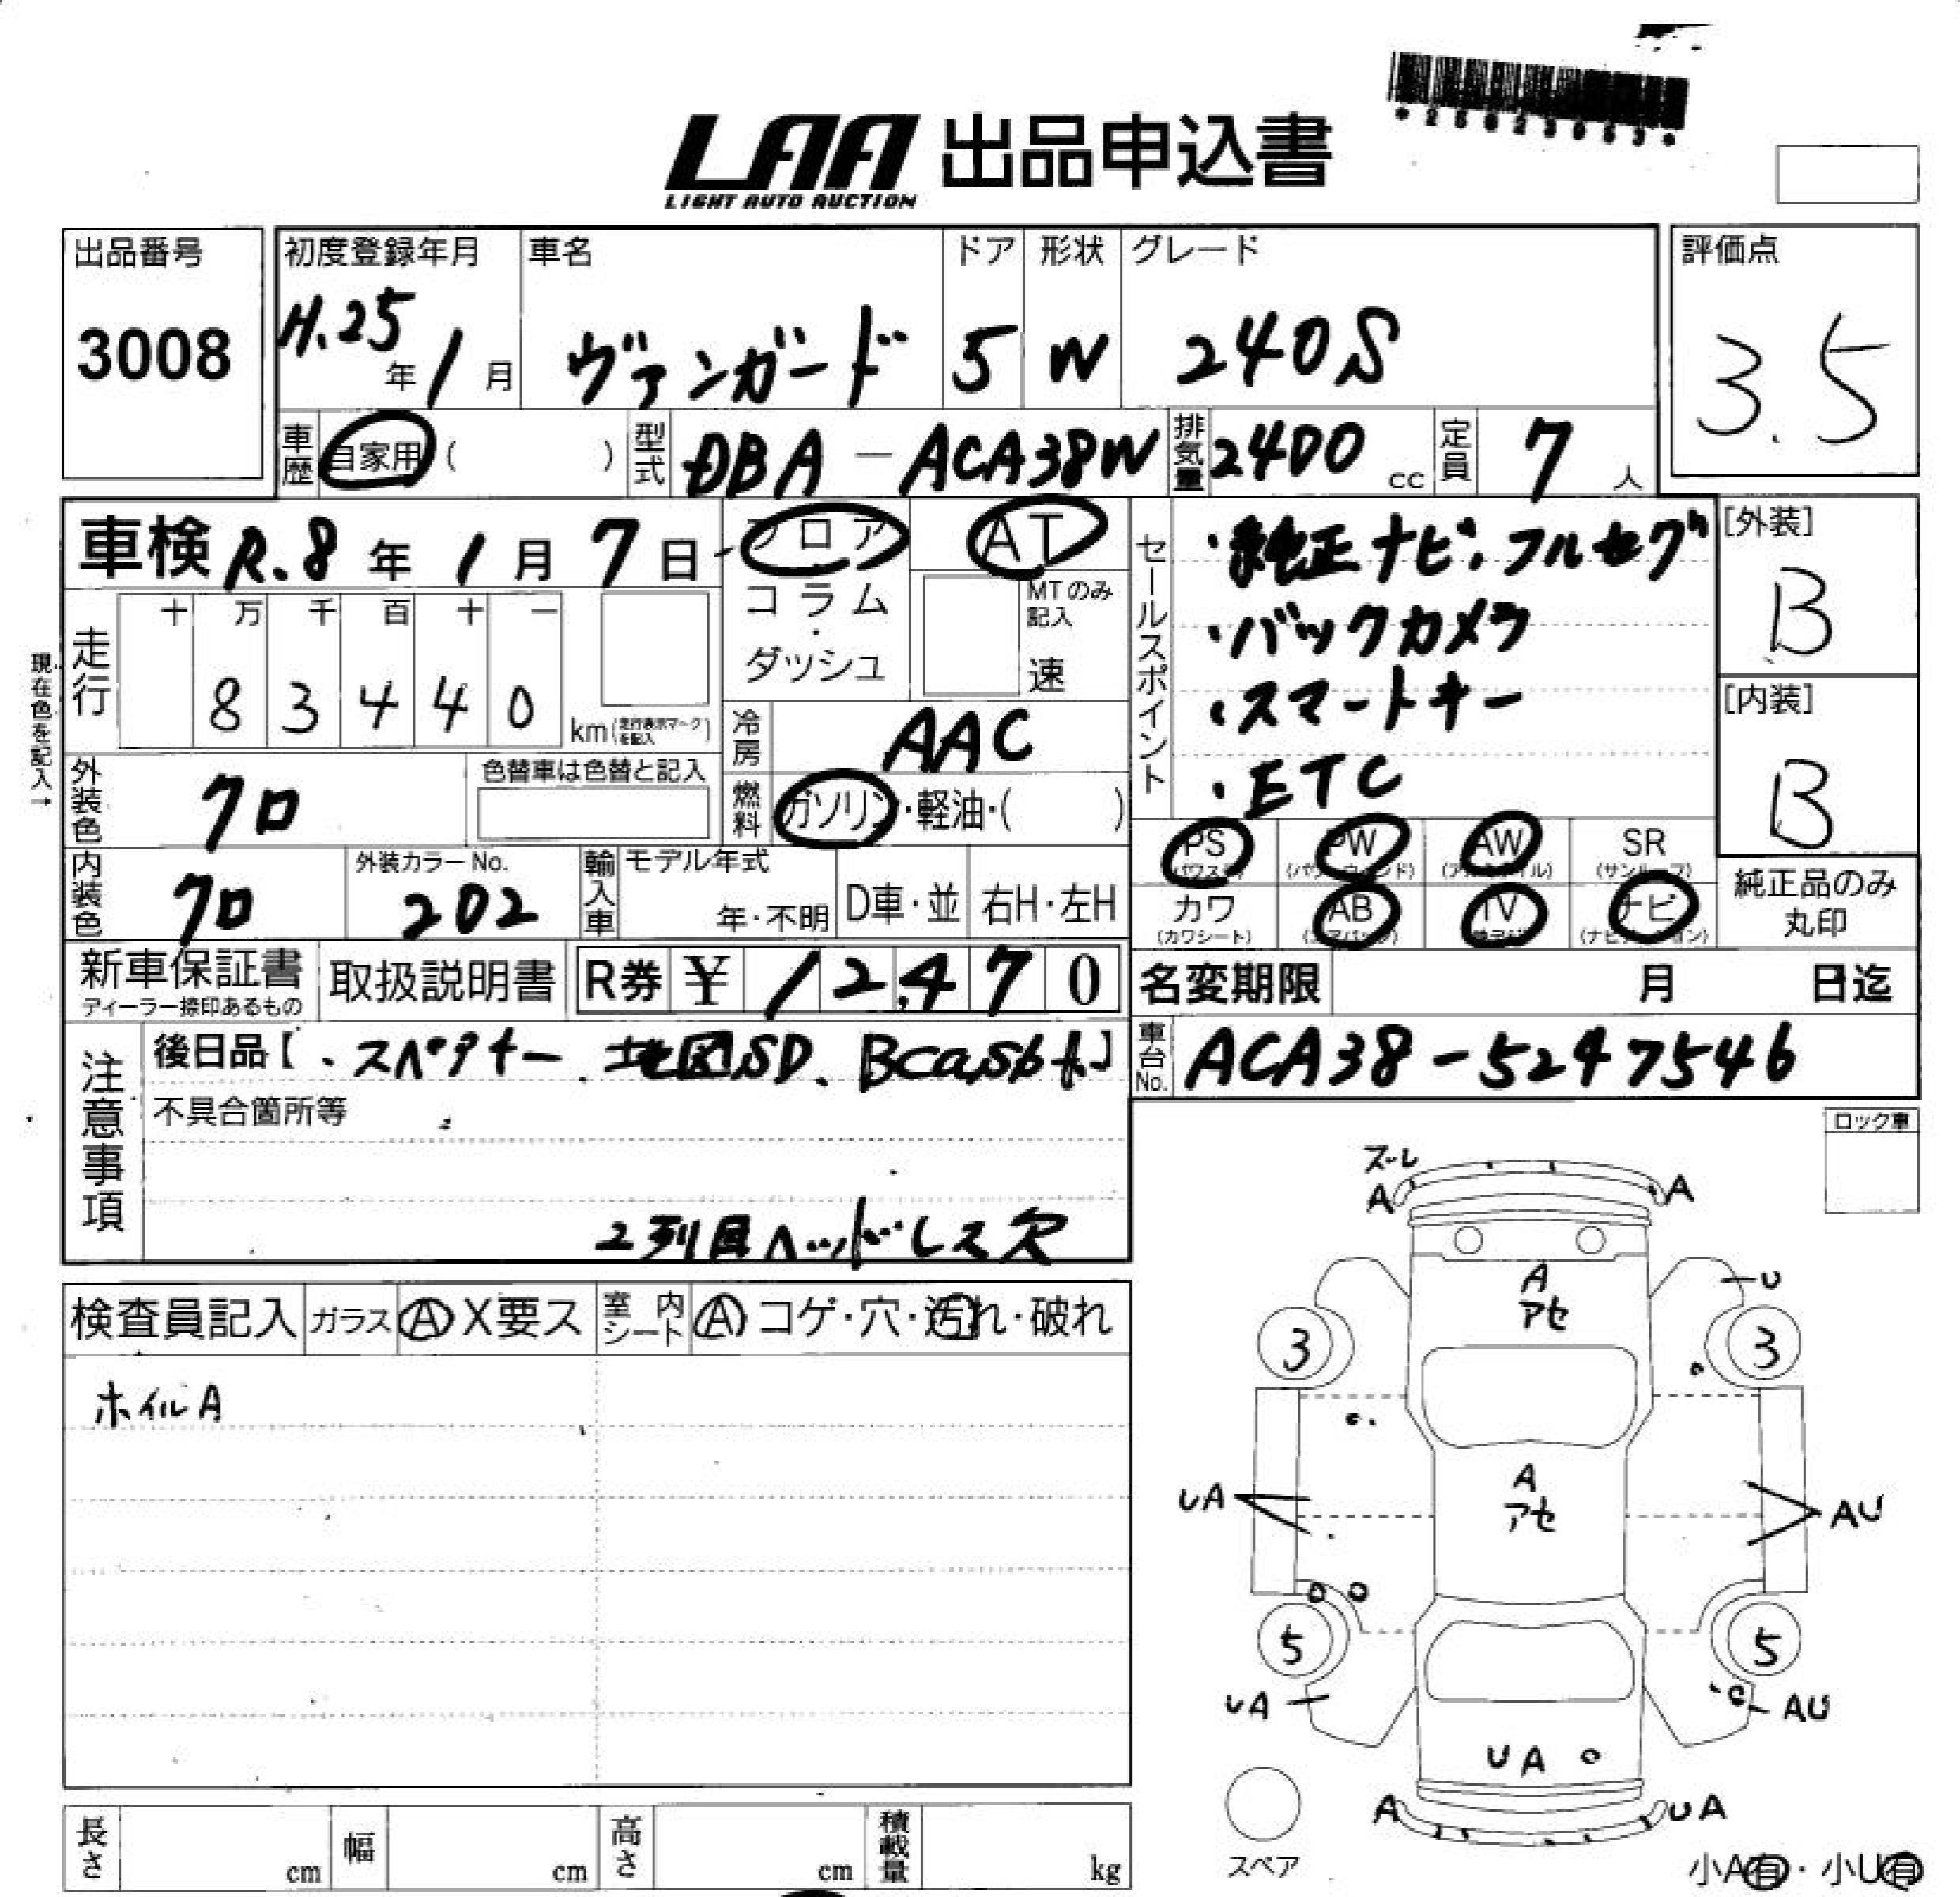 LAA 出品申込書
LIGHT AUTO AUCTION
出品番号
3008
初度登録年月
H.25年 1月
車名
ヴァンガード
ドア
5
形状
W
グレード
240S
評価点
3.5
車歴 自家用 ( )
型式 DBA-ACA38W
排気量 2400 cc
定員 7人
車検 R.8年 1月 7日
フロア
コラム・ダッシュ
AT
MTのみ記入
速
現在色を記入→
走行
十 万 千 百 十 一
8 3 4 4 0
km(走行表示マークを記入)
冷房 AAC
燃料 ガソリン・軽油・( )
外装色 クロ
色替車は色替と記入
内装色 クロ
外装カラーNo.
202
輸入車
モデル年式
年・不明
D車・並
右H・左H
セールスポイント
・純正ナビ、フルセグ
・バックカメラ
・スマートキー
・ETC
[外装]
B
[内装]
B
PS (パワステ)
PW (パワーウィンド)
AW (アルミホイル)
SR (サンルーフ)
カワ (カワシート)
AB (エアバック)
TV
ナビ (ナビゲーション)
純正品のみ丸印
新車保証書
ディーラー捺印あるもの
取扱説明書
R券 ¥ 12,470
名変期限 月 日迄
車台No. ACA38-5247546
注意事項
後日品【・スペアキー、地図SD、Bcas
不具合箇所等
2列目ヘッドレス欠
ロック車
検査員記入
ガラス A X要ス
室内シート A コゲ・穴・汚れ・破れ
ホイルA
ズレ
A
A
A
アセ
U
3
3
A
アセ
UA
AU
5
5
UA
AU
UA
A
UA
スペア
小A有・小U有
長さ cm
幅 cm
高さ cm
積載量 kg